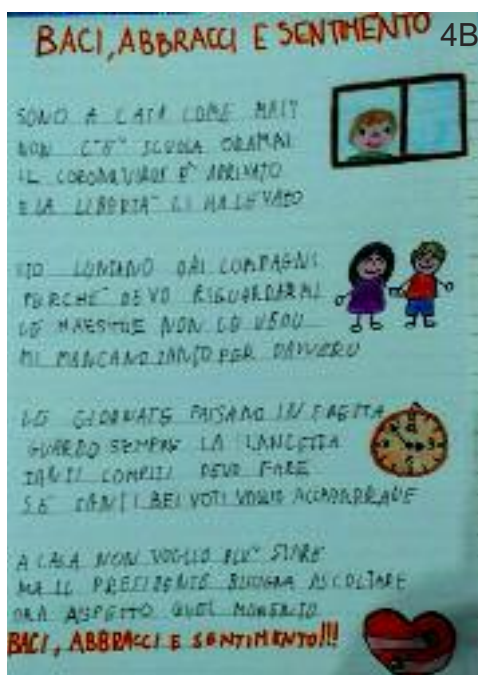 BACI, ABBRACCI E SENTIMENTO 4B
SONO A CASA COME MAI?
NON C'È SCUOLA ORAMAI
IL CORONAVIRUS È ARRIVATO
E LA LIBERTÀ CI HA LEVATO
STO LONTANO DAI COMPAGNI
PERCHÉ DEVO RIGUARDARMI
LE MAESTRE NON LE VEDO
MI MANCANO TANTO PER DAVVERO
LE GIORNATE PASSANO IN FRETTA
GUARDO SEMPRE LA LANCETTA
TANTI COMPITI DEVO FARE
SE TANTI BEI VOTI VOGLIO ACCAPARRARE
A CASA NON VOGLIO PIÙ STARE
MA IL PRESIDENTE BISOGNA ASCOLTARE
ORA ASPETTO QUEL MOMENTO
BACI, ABBRACCI E SENTIMENTO!!!